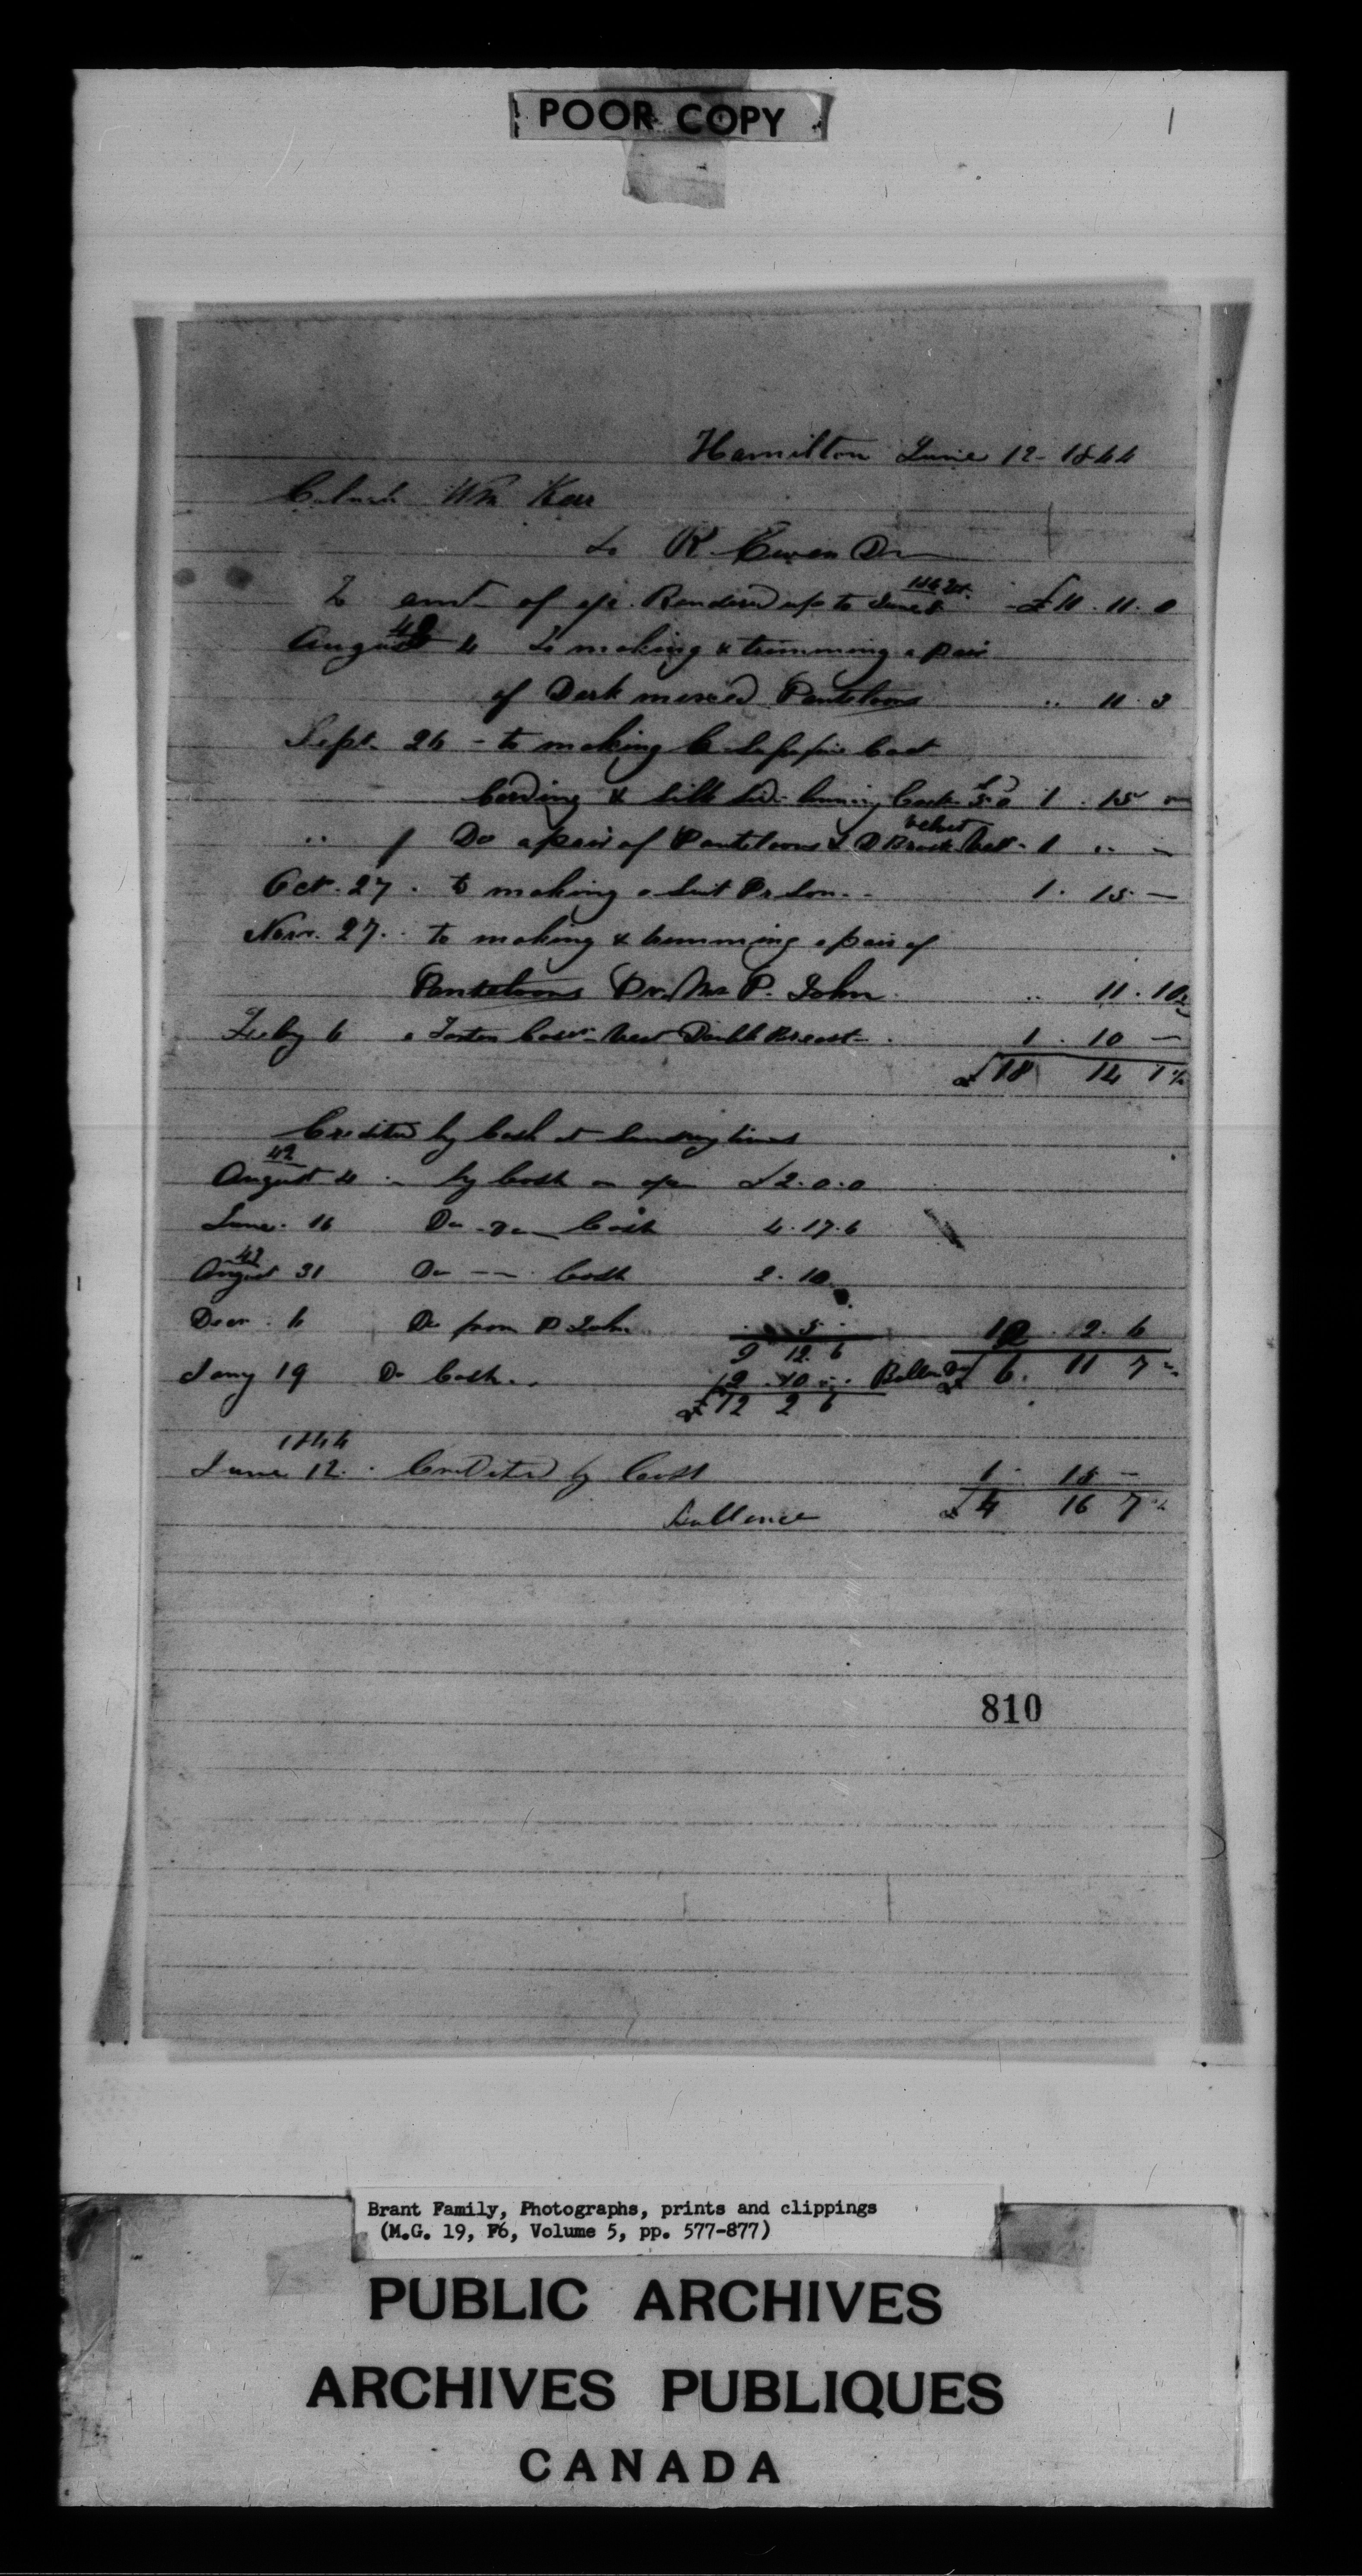 POOR COPY
Hamilton June 12 - 1844
Wm Kerr
To R. Ewen Dr
To amt of a/c Rendered up to June 8 1842 - £11 . 11 . 0
42
August 4 to making & trimming a pair
of Dark mixed Pantaloons .. 11 . 3
Sept. 26 - to making Coat
Cording & silk 5.0 1 . 15 -
.. Do a pair of Pantaloons & D Breast velvet Vest - 1 .. -
Oct. 27 . to making a Suit Pr Son - - 1 . 15 -
Novr. 27 . to making & trimming a pair of
Pantaloons Pr Mr P. John . .. 11 . 10½
Feby 6 a Vest Double Breast - . 1 . 10 -
£18 14 1½
Credited by Cash at sundry times
42
August 4 - by Cash on a/c £2 . 0 . 0
June . 16 Do - Do Cash 4 . 17 . 6
43
August 31 Do - - Cash 2 . 10
Decr . 6 Do from P John . 5 . 12 . 2 . 6
9 12 6
Jany 19 Do Cash . . 2 . 10 - . Ballance £6 . 11 7½
£12 2 6
1844
June 12 . Credited by Cash 1 - 15 -
Ballance £4 16 7½
810
Brant Family, Photographs, prints and clippings
(M.G. 19, F6, Volume 5, pp. 577-877)
PUBLIC ARCHIVES
ARCHIVES PUBLIQUES
CANADA